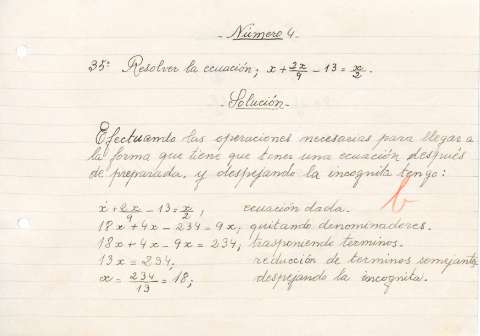 - Número 4. -
35º Resolver la ecuación; x + 2x/9 - 13 = x/2.
- Solución -
Efectuando las operaciones necesarias para llegar a
la forma que tiene que tener una ecuación después
de preparada, y despejando la incognita tengo:
x + 2x/9 - 13 = x/2, ecuación dada.
18x + 4x - 234 = 9x, quitando denominadores.
18x + 4x - 9x = 234, trasponiendo terminos.
13x = 234, reducción de terminos semejantes
x = 234/13 = 18; despejando la incognita.
b